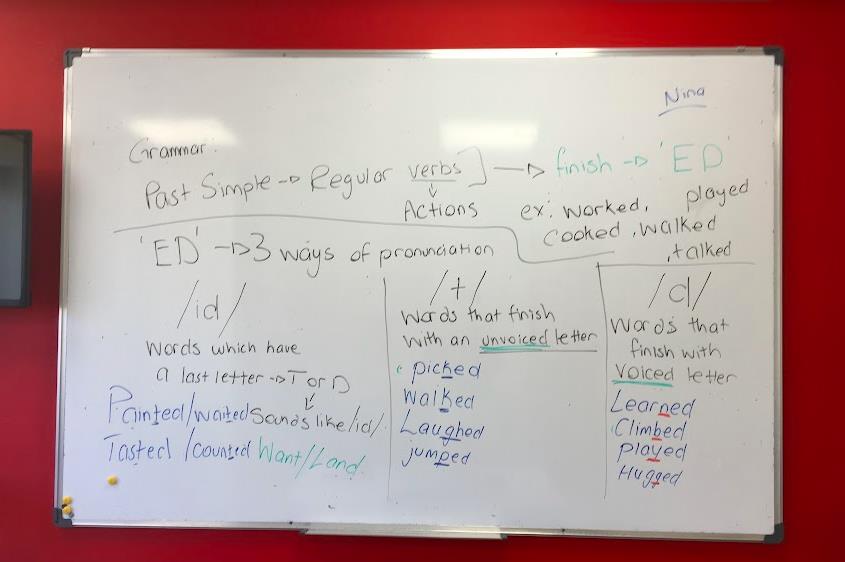 Nina
Grammar:
Past Simple → Regular verbs] → finish → 'ED'
↓
Actions
ex: worked, played
cooked, walked
, talked
'ED' → 3 ways of pronunciation
/id/
Words which have
a last letter → T or D
↓
Painted/waited Sounds like /id/
Tasted /counted Want/Land
/t/
Words that finish
with an unvoiced letter
picked
Walked
Laughed
jumped
/d/
Words that
finish with
Voiced letter
Learned
Climbed
Played
Hugged